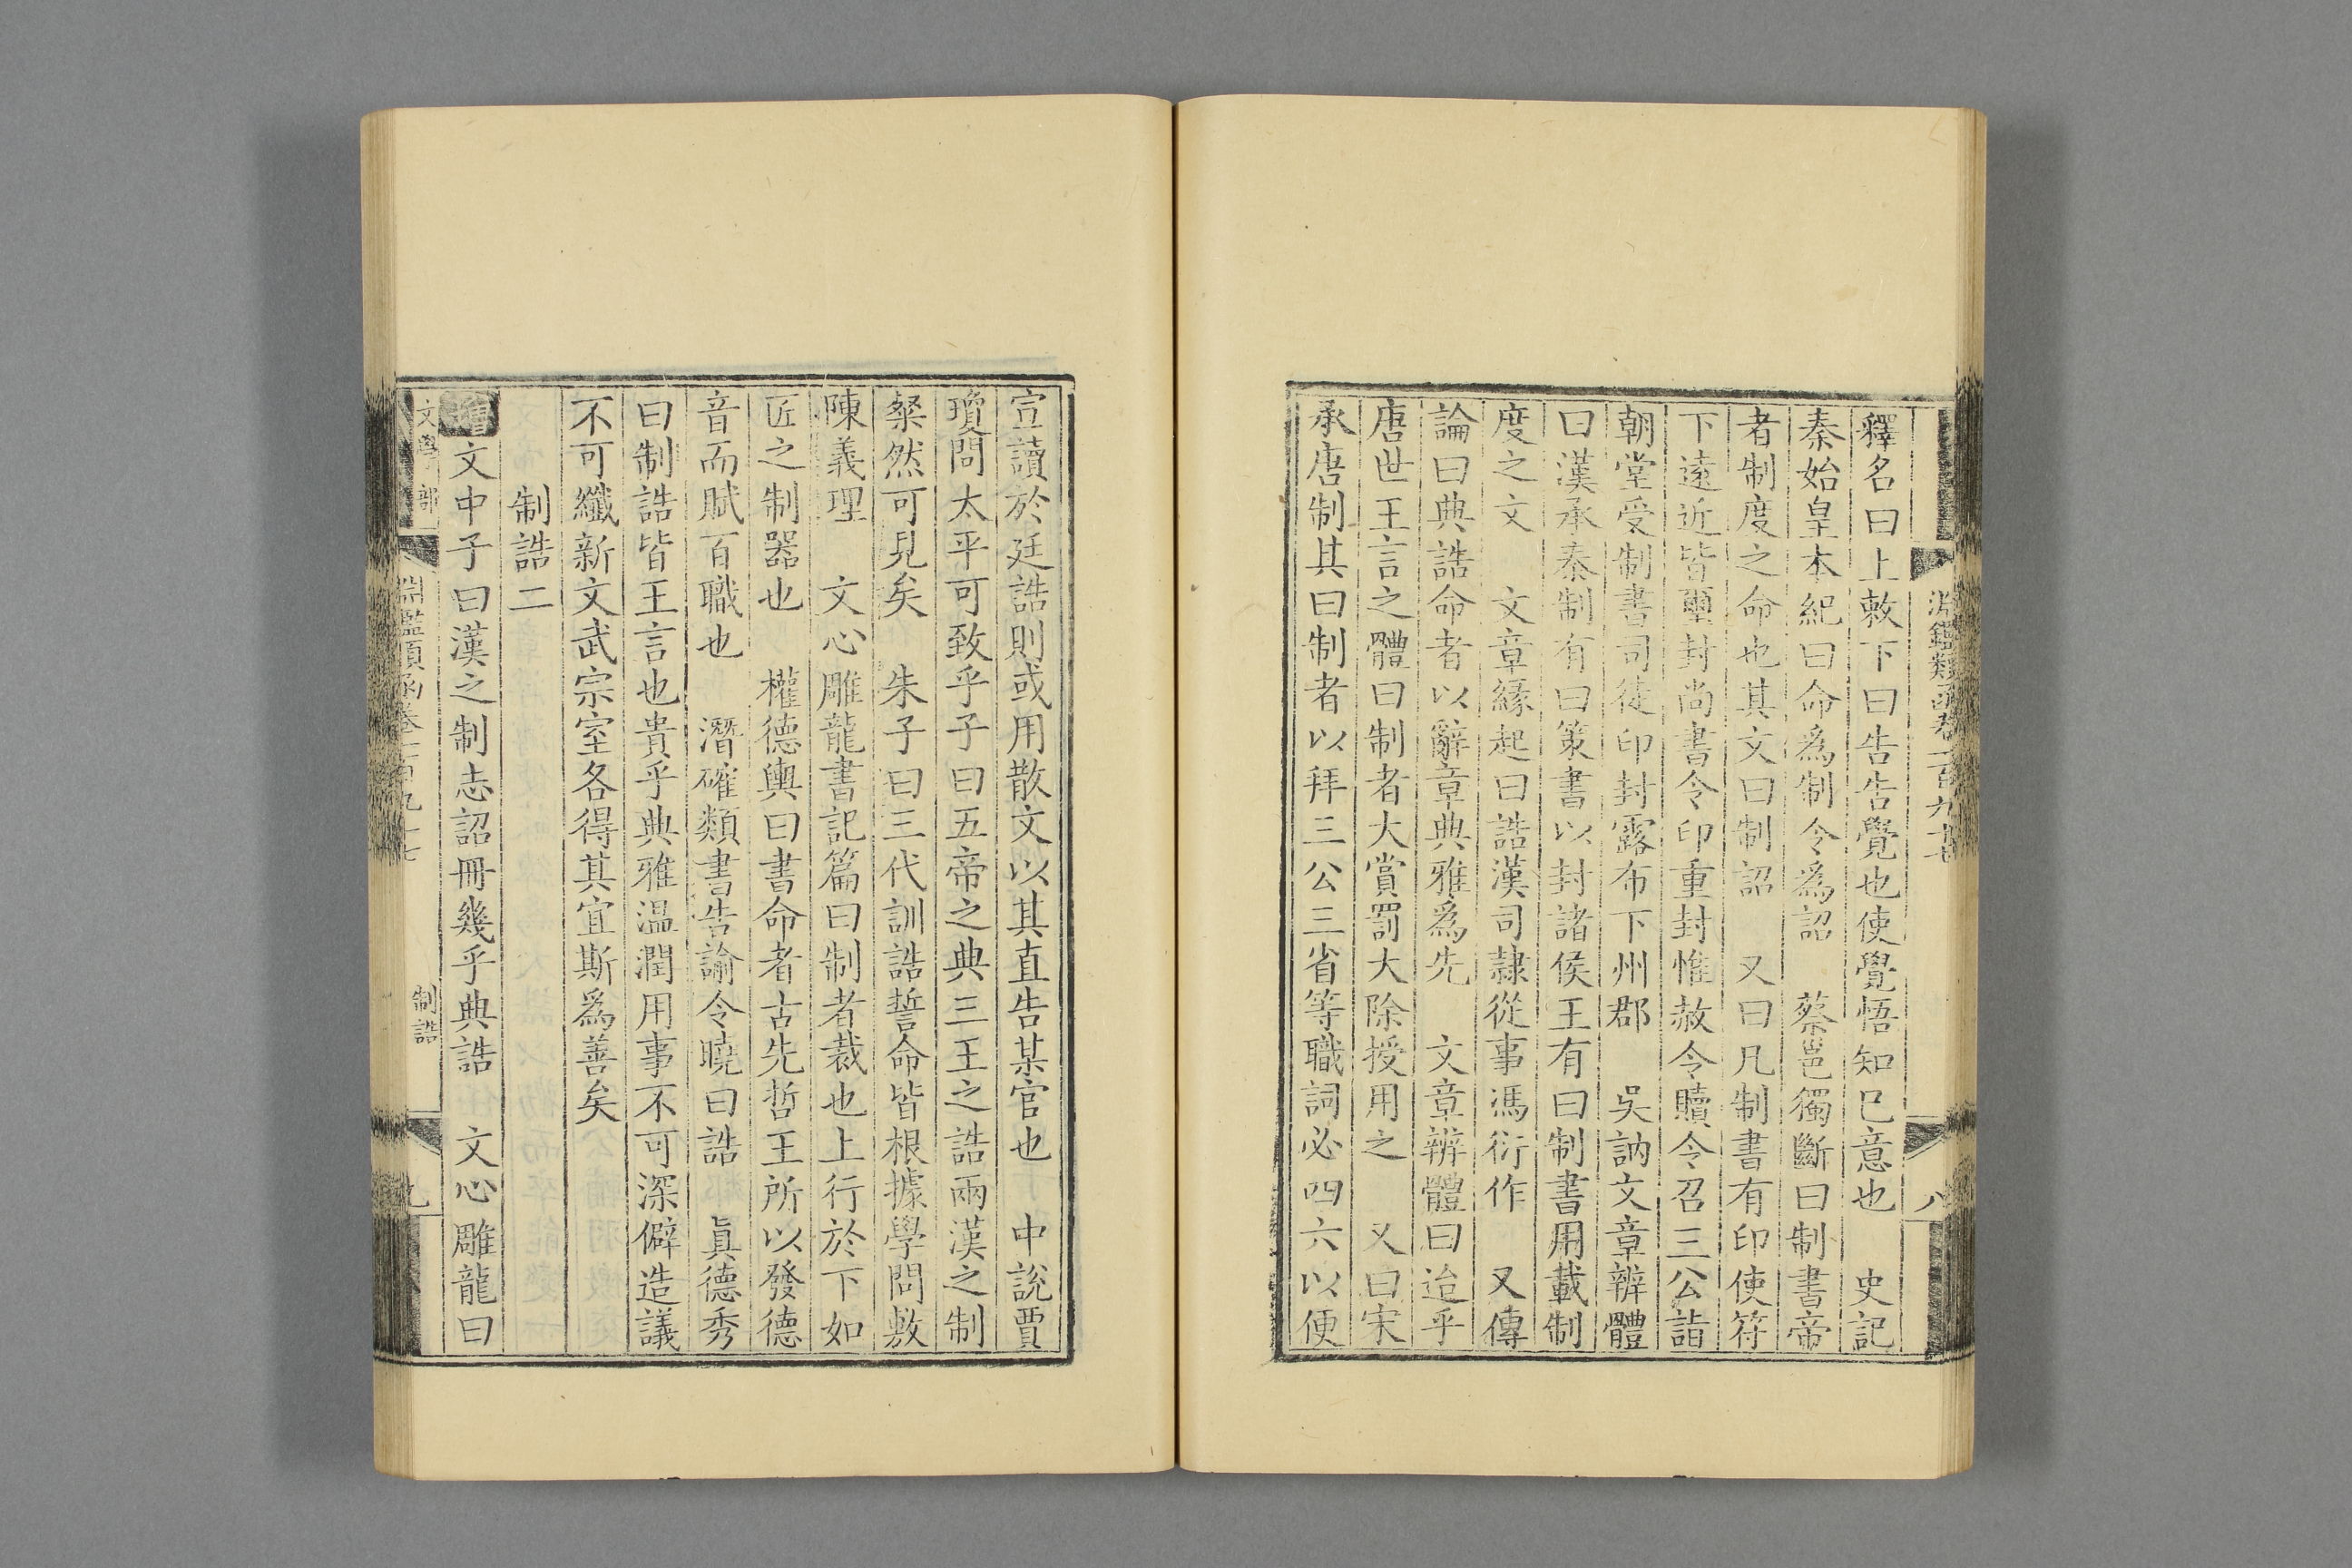 淵鑑類函卷一百九十七
八
釋名曰上敕下曰告告覺也使覺悟知已意也　史記
秦始皇本紀曰命爲制令爲詔　蔡邕獨斷曰制書帝
者制度之命也其文曰制詔　又曰凡制書有印使符
下遠近皆璽封尚書令印重封惟赦令贖令召三公詣
朝堂受制書司徒印封露布下州郡　吳訥文章辨體
曰漢承秦制有曰策書以封諸侯王有曰制書用載制
度之文　文章緣起曰誥漢司隷從事馮衍作　又傳
論曰典誥命者以辭章典雅爲先　文章辨體曰迨乎
唐世王言之體曰制者大賞罰大除授用之　又曰宋
承唐制其曰制者以拜三公三省等職詞必四六以便
宣讀於廷誥則或用散文以其直告某官也　中說賈
瓊問太平可致乎子曰五帝之典三王之誥兩漢之制
粲然可見矣　朱子曰三代訓誥誓命皆根據學問敷
陳義理　文心雕龍書記篇曰制者裁也上行於下如
匠之制器也　權德輿曰書命者古先哲王所以發德
音而賦百職也　潛確類書告諭令曉曰誥　眞德秀
曰制誥皆王言也貴乎典雅温潤用事不可深僻造議
不可纖新文武宗室各得其宜斯爲善矣
制誥二
增文中子曰漢之制志詔冊幾乎典誥　文心雕龍曰
文學部
淵鑑類函卷一百九十七
制誥
九